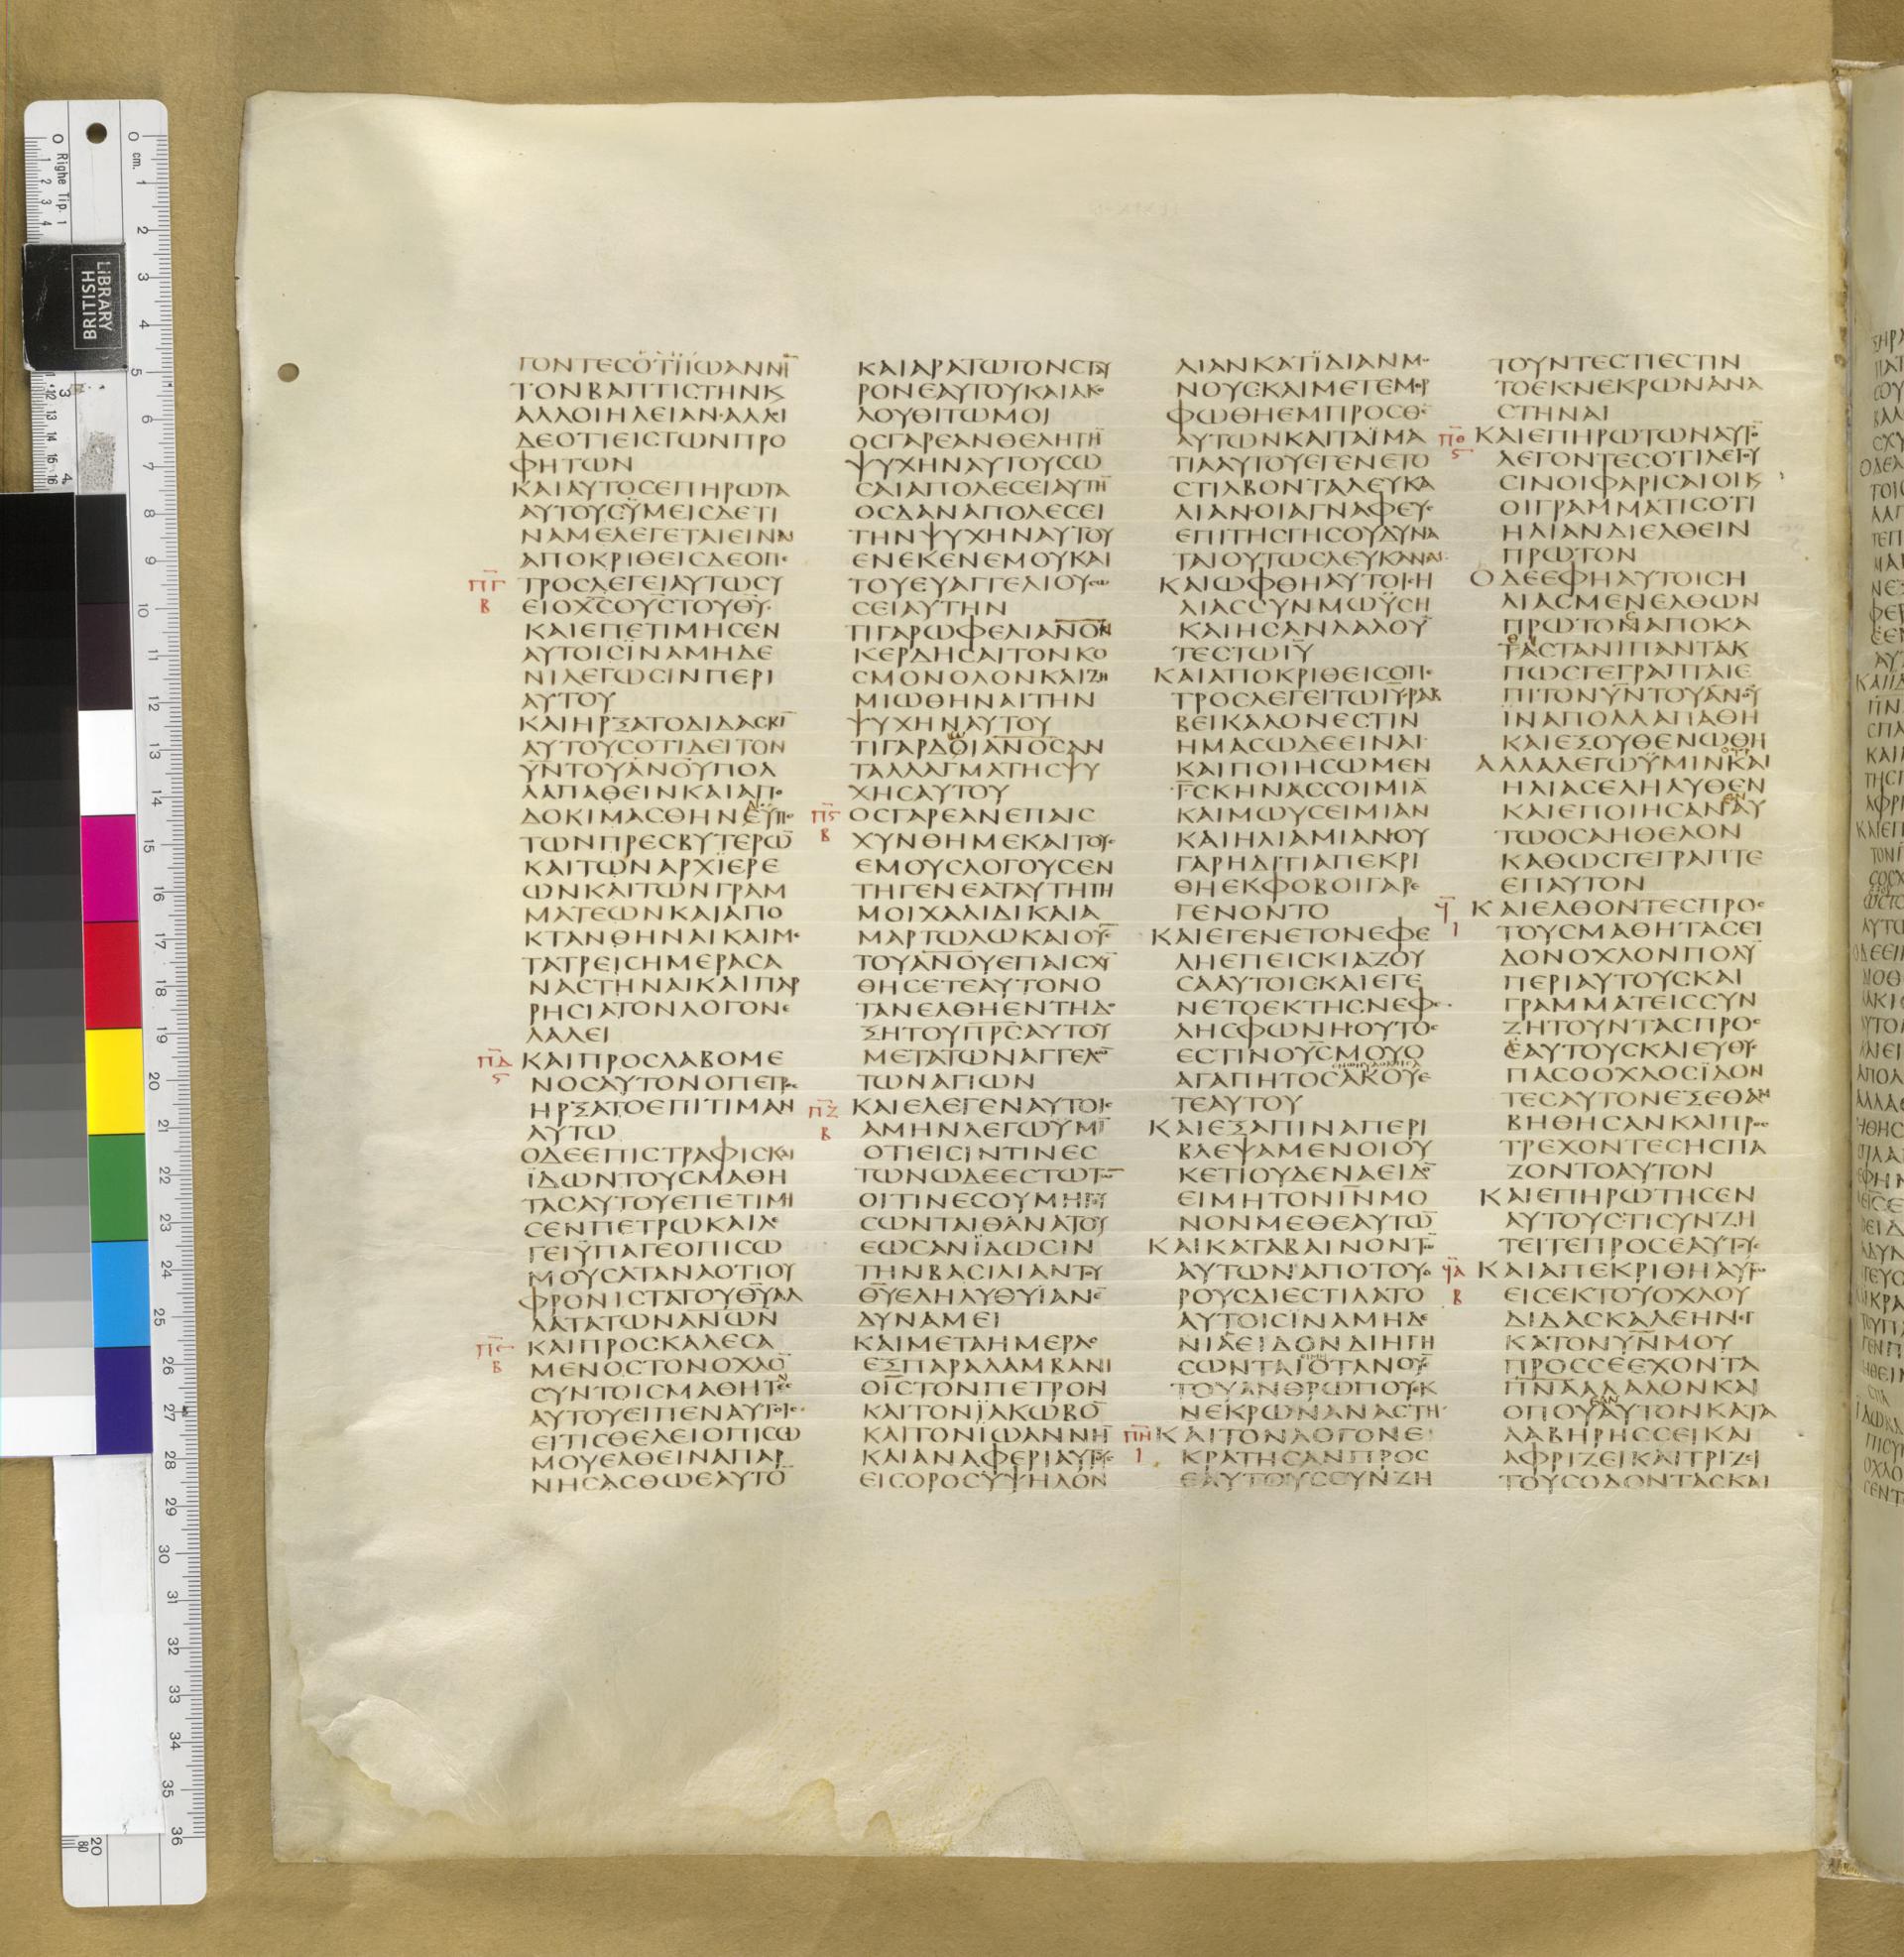 ΓΟΝΤΕϹΟΤΙΪΩΑΝΝΗ
ΤΟΝΒΑΠΤΙϹΤΗΝΚ
ΑΛΛΟΙΗΛΕΙΑΝΑΛΛΟΙ
ΔΕΟΤΙΕΙϹΤΩΝΠΡΟ
ΦΗΤΩΝ
ΚΑΙΑΥΤΟϹΕΠΗΡΩΤΑ
ΑΥΤΟΥϹΫΜΕΙϹΔΕΤΙ
ΝΑΜΕΛΕΓΕΤΑΙΕΙΝΑΙ
ΑΠΟΚΡΙΘΕΙϹΔΕΟΠΕ
ΤΡΟϹΛΕΓΕΙΑΥΤΩϹΥ
ΕΙΟΧ̅Ϲ̅ΟΥϹΤΟΥΘ̅Υ̅
ΚΑΙΕΠΕΤΙΜΗϹΕΝ
ΑΥΤΟΙϹΪΝΑΜΗΔΕ
ΝΙΛΕΓΩϹΙΝΠΕΡΙ
ΑΥΤΟΥ
ΚΑΙΗΡΞΑΤΟΔΙΔΑϹΚΙ̅
ΑΥΤΟΥϹΟΤΙΔΕΙΤΟΝ
Υ̅Ν̅ΤΟΥΑ̅Ν̅Ο̅Υ̅ΠΟΛ
ΛΑΠΑΘΕΙΝΚΑΙΑΠΟ
ΔΟΚΙΜΑϹΘΗΝΕΫΠΟ
ΤΩΝΠΡΕϹΒΥΤΕΡΩ̅
ΚΑΙΤΩΝΑΡΧΪΕΡΕ
ΩΝΚΑΙΤΩΝΓΡΑΜ
ΜΑΤΕΩΝΚΑΙΑΠΟ
ΚΤΑΝΘΗΝΑΙΚΑΙΜΕ
ΤΑΤΡΕΙϹΗΜΕΡΑϹΑ
ΝΑϹΤΗΝΑΙΚΑΙΠΑΡ
ΡΗϹΙΑΤΟΝΛΟΓΟΝΕ
ΛΑΛΕΙ
ΚΑΙΠΡΟϹΛΑΒΟΜΕ
ΝΟϹΑΥΤΟΝΟΠΕΤΡΟϹ
ΗΡΞΑΤΟΕΠΙΤΙΜΑΝ
ΑΥΤΩ
ΟΔΕΕΠΙϹΤΡΑΦΙϹΚΑΙ
ΪΔΩΝΤΟΥϹΜΑΘΗ
ΤΑϹΑΥΤΟΥΕΠΕΤΙΜΗ
ϹΕΝΠΕΤΡΩΚΑΙΛΕ
ΓΕΙΫΠΑΓΕΟΠΙϹΩ
ΜΟΥϹΑΤΑΝΑΟΤΙΟΥ
ΦΡΟΝΙϹΤΑΤΟΥΘ̅Υ̅ΑΛ
ΛΑΤΑΤΩΝΑ̅Ν̅Ω̅Ν̅
ΚΑΙΠΡΟϹΚΑΛΕϹΑ
ΜΕΝΟϹΤΟΝΟΧΛΟ̅
ϹΥΝΤΟΙϹΜΑΘΗΤΑΙϹ
ΑΥΤΟΥΕΙΠΕΝΑΥΤΟΙϹ
ΕΙΤΙϹΘΕΛΕΙΟΠΙϹΩ
ΜΟΥΕΛΘΕΙΝΑΠΑΡ
ΝΗϹΑϹΘΩΕΑΥΤΟ̅
ΚΑΙΑΡΑΤΩΤΟΝϹΤΑΥ
ΡΟΝΕΑΥΤΟΥΚΑΙΑΚΟ
ΛΟΥΘΙΤΩΜΟΙ
ΟϹΓΑΡΕΑΝΘΕΛΗΤΗ̅
ΨΥΧΗΝΑΥΤΟΥϹΩ
ϹΑΙΑΠΟΛΕϹΕΙΑΥΤΗ̅
ΟϹΔΑΝΑΠΟΛΕϹΕΙ
ΤΗΝΨΥΧΗΝΑΥΤΟΥ
ΕΝΕΚΕΝΕΜΟΥΚΑΙ
ΤΟΥΕΥΑΓΓΕΛΙΟΥϹΩ
ϹΕΙΑΥΤΗΝ
ΤΙΓΑΡΩΦΕΛΙΑ̅Ν̅Ο̅Ν̅
ΚΕΡΔΗϹΑΙΤΟΝΚΟ
ϹΜΟΝΟΛΟΝΚΑΙΖΗ
ΜΙΩΘΗΝΑΙΤΗΝ
ΨΥΧΗΝΑΥΤΟΥ
ΤΙΓΑΡΔΟΙΑ̅Ν̅Ο̅Ϲ̅ΑΝ
ΤΑΛΛΑΓΜΑΤΗϹΨΥ
ΧΗϹΑΥΤΟΥ
ΟϹΓΑΡΕΑΝΕΠΑΙϹ
ΧΥΝΘΗΜΕΚΑΙΤΟΥϹ
ΕΜΟΥϹΛΟΓΟΥϹΕΝ
ΤΗΓΕΝΕΑΤΑΥΤΗΤΗ
ΜΟΙΧΑΛΙΔΙΚΑΙΑ
ΜΑΡΤΩΛΩΚΑΙΟΥϹ
ΤΟΥΑ̅Ν̅Ο̅Υ̅ΕΠΑΙϹΧΥ
ΘΗϹΕΤΕΑΥΤΟΝΟ
ΤΑΝΕΛΘΗΕΝΤΗΔΟ
ΞΗΤΟΥΠ̅Ρ̅Ϲ̅ΑΥΤΟΥ
ΜΕΤΑΤΩΝΑΓΓΕΛΩ
ΤΩΝΑΓΙΩΝ
ΚΑΙΕΛΕΓΕΝΑΥΤΟΙϹ
ΑΜΗΝΛΕΓΩΫΜΙ̅
ΟΤΙΕΙϹΙΝΤΙΝΕϹ
ΤΩΝΩΔΕΕϹΤΩΤΩ̅
ΟΙΤΙΝΕϹΟΥΜΗΓΕΥ
ϹΩΝΤΑΙΘΑΝΑΤΟΥ
ΕΩϹΑΝΪΔΩϹΙΝ
ΤΗΝΒΑϹΙΛΙΑΝΤΟΥ
Θ̅Υ̅ΕΛΗΛΥΘΥΙΑΝΕ
ΔΥΝΑΜΕΙ
ΚΑΙΜΕΤΑΗΜΕΡΑϹ
ΕΞΠΑΡΑΛΑΜΒΑΝΙ
ΟΙ̅Ϲ̅ΤΟΝΠΕΤΡΟΝ
ΚΑΙΤΟΝΪΑΚΩΒΟ̅
ΚΑΙΤΟΝΙΩΑΝΝΗ̅
ΚΑΙΑΝΑΦΕΡΙΑΥΤΟΥϹ
ΕΙϹΟΡΟϹΥΨΗΛΟΝ
ΛΙΑΝΚΑΤΪΔΙΑΝΜΟ
ΝΟΥϹΚΑΙΜΕΤΕΜΟΡ
ΦΩΘΗΕΜΠΡΟϹΘΕ
ΑΥΤΩΝΚΑΙΤΑΪΜΑ
ΤΙΑΑΥΤΟΥΕΓΕΝΕΤΟ
ϹΤΙΛΒΟΝΤΑΛΕΥΚΑ
ΛΙΑΝΟΙΑΓΝΑΦΕΥϹ
ΕΠΙΤΗϹΓΗϹΟΥΔΥΝΑ
ΤΑΙΟΥΤΩϹΛΕΥΚΑΝΑΙ
ΚΑΙΩΦΘΗΑΥΤΟΙϹΗ
ΛΙΑϹϹΥΝΜΩΫϹΗ
ΚΑΙΗϹΑΝΛΑΛΟΥ̅
ΤΕϹΤΩΙ̅Υ̅
ΚΑΙΑΠΟΚΡΙΘΕΙϹΟΠΕ
ΤΡΟϹΛΕΓΕΙΤΩΙ̅Υ̅ΡΑΒ
ΒΕΙΚΑΛΟΝΕϹΤΙΝ
ΗΜΑϹΩΔΕΕΙΝΑΙ
ΚΑΙΠΟΙΗϹΩΜΕΝ
Γ̅ϹΚΗΝΑϹϹΟΙΜΙΑ̅
ΚΑΙΜΩΥϹΕΙΜΙΑΝ
ΚΑΙΗΛΙΑΜΙΑΝΟΥ
ΓΑΡΗΔΙΤΙΑΠΕΚΡΙ
ΘΗΕΚΦΟΒΟΙΓΑΡΕ
ΓΕΝΟΝΤΟ
ΚΑΙΕΓΕΝΕΤΟΝΕΦΕ
ΛΗΕΠΕΙϹΚΙΑΖΟΥ
ϹΑΑΥΤΟΙϹΚΑΙΕΓΕ
ΝΕΤΟΕΚΤΗϹΝΕΦΕ
ΛΗϹΦΩΝΗΟΥΤΟϹ
ΕϹΤΙΝΟΥ̅Ϲ̅ΜΟΥΟ
ΑΓΑΠΗΤΟϹΑΚΟΥΕ
ΤΕΑΥΤΟΥ
ΚΑΙΕΞΑΠΙΝΑΠΕΡΙ
ΒΛΕΨΑΜΕΝΟΙΟΥ
ΚΕΤΙΟΥΔΕΝΑΕΙΔΟ̅
ΕΙΜΗΤΟΝΙ̅Ν̅ΜΟ
ΝΟΝΜΕΘΕΑΥΤΩ̅
ΚΑΙΚΑΤΑΒΑΙΝΟΝΤΩ̅
ΑΥΤΩΝΑΠΟΤΟΥΟ
ΡΟΥϹΔΙΕϹΤΙΛΑΤΟ
ΑΥΤΟΙϹΙΝΑΜΗΔΕ
ΝΙΑΕΙΔΟΝΔΙΗΓΗ
ϹΩΝΤΑΙΟΤΑΝΟΥ̅Ϲ̅
ΤΟΥΑΝΘΡΩΠΟΥΕΚ
ΝΕΚΡΩΝΑΝΑϹΤΗ
ΚΑΙΤΟΝΛΟΓΟΝΕ
ΚΡΑΤΗϹΑΝΠΡΟϹ
ΕΑΥΤΟΥϹϹΥΝΖΗ
ΤΟΥΝΤΕϹΤΙΕϹΤΙΝ
ΤΟΕΚΝΕΚΡΩΝΑΝΑ
ϹΤΗΝΑΙ
ΚΑΙΕΠΗΡΩΤΩΝΑΥΤΟ̅
ΛΕΓΟΝΤΕϹΟΤΙΛΕΓΟΥ
ϹΙΝΟΙΦΑΡΙϹΑΙΟΙΚ
ΟΙΓΡΑΜΜΑΤΙϹΟΤΙ
ΗΛΙΑΝΔΙΕΛΘΕΙΝ
ΠΡΩΤΟΝ
ΟΔΕΕΦΗΑΥΤΟΙϹΗ
ΛΙΑϹΜΕΝΕΛΘΩΝ
ΠΡΩΤΟΝΑΠΟΚΑ
ΤΑϹΤΑΝΙΠΑΝΤΑΚ
ΠΩϹΓΕΓΡΑΠΤΑΙΕ
ΠΙΤΟΝΥ̅Ν̅ΤΟΥΑ̅Ν̅Ο̅Υ̅
ΪΝΑΠΟΛΛΑΠΑΘΗ
ΚΑΙΕΞΟΥΘΕΝΩΘΗ
ΑΛΛΑΛΕΓΩΫΜΙΝΚΑΙ
ΗΛΙΑϹΕΛΗΛΥΘΕΝ
ΚΑΙΕΠΟΙΗϹΑΝΑΥ
ΤΩΟϹΑΗΘΕΛΟΝ
ΚΑΘΩϹΓΕΓΡΑΠΤΕ
ΕΠΑΥΤΟΝ
ΚΑΙΕΛΘΟΝΤΕϹΠΡΟϹ
ΤΟΥϹΜΑΘΗΤΑϹΕΙ
ΔΟΝΟΧΛΟΝΠΟΛΥ̅
ΠΕΡΙΑΥΤΟΥϹΚΑΙ
ΓΡΑΜΜΑΤΕΙϹϹΥΝ
ΖΗΤΟΥΝΤΑϹΠΡΟϹ
ΕΑΥΤΟΥϹΚΑΙΕΥΘΥϹ
ΠΑϹΟΟΧΛΟϹΪΔΟΝ
ΤΕϹΑΥΤΟΝΕΞΕΘΑΜ
ΒΗΘΗϹΑΝΚΑΙΠΡΟϹ
ΤΡΕΧΟΝΤΕϹΗϹΠΑ
ΖΟΝΤΟΑΥΤΟΝ
ΚΑΙΕΠΗΡΩΤΗϹΕΝ
ΑΥΤΟΥϹΤΙϹΥΝΖΗ
ΤΕΙΤΕΠΡΟϹΕΑΥΤΟΥϹ
ΚΑΙΑΠΕΚΡΙΘΗΑΥΤΩ
ΕΙϹΕΚΤΟΥΟΧΛΟΥ
ΔΙΔΑϹΚΑΛΕΗΝΕΓ
ΚΑΤΟΝΥ̅Ν̅ΜΟΥ
ΠΡΟϹϹΕΕΧΟΝΤΑ
Π̅Ν̅Α̅ΑΛΑΛΟΝΚΑΙ
ΟΠΟΥΑΥΤΟΝΚΑΤΑ
ΛΑΒΗΡΗϹϹΕΙΚΑΙ
ΑΦΡΙΖΕΙΚΑΙΤΡΙΖΕΙ
ΤΟΥϹΟΔΟΝΤΑϹΚΑΙ
Π̅Γ̅
Β
Π̅Δ̅
Π̅Ε̅
Β
Β
Π̅Ζ̅
Β
Π̅Η̅
Ι
Ϟ̅
Ι
Ϟ̅Α̅
Β
BRITISH
LIBRARY
0 cm. 1 2 3 4 5 6 7 8 9 10 11 12 13 14 15 16 17 18 19 20 21 22 23 24 25 26 27 28 29 30 31 32 33 34 35 36
Righe Tip. 1